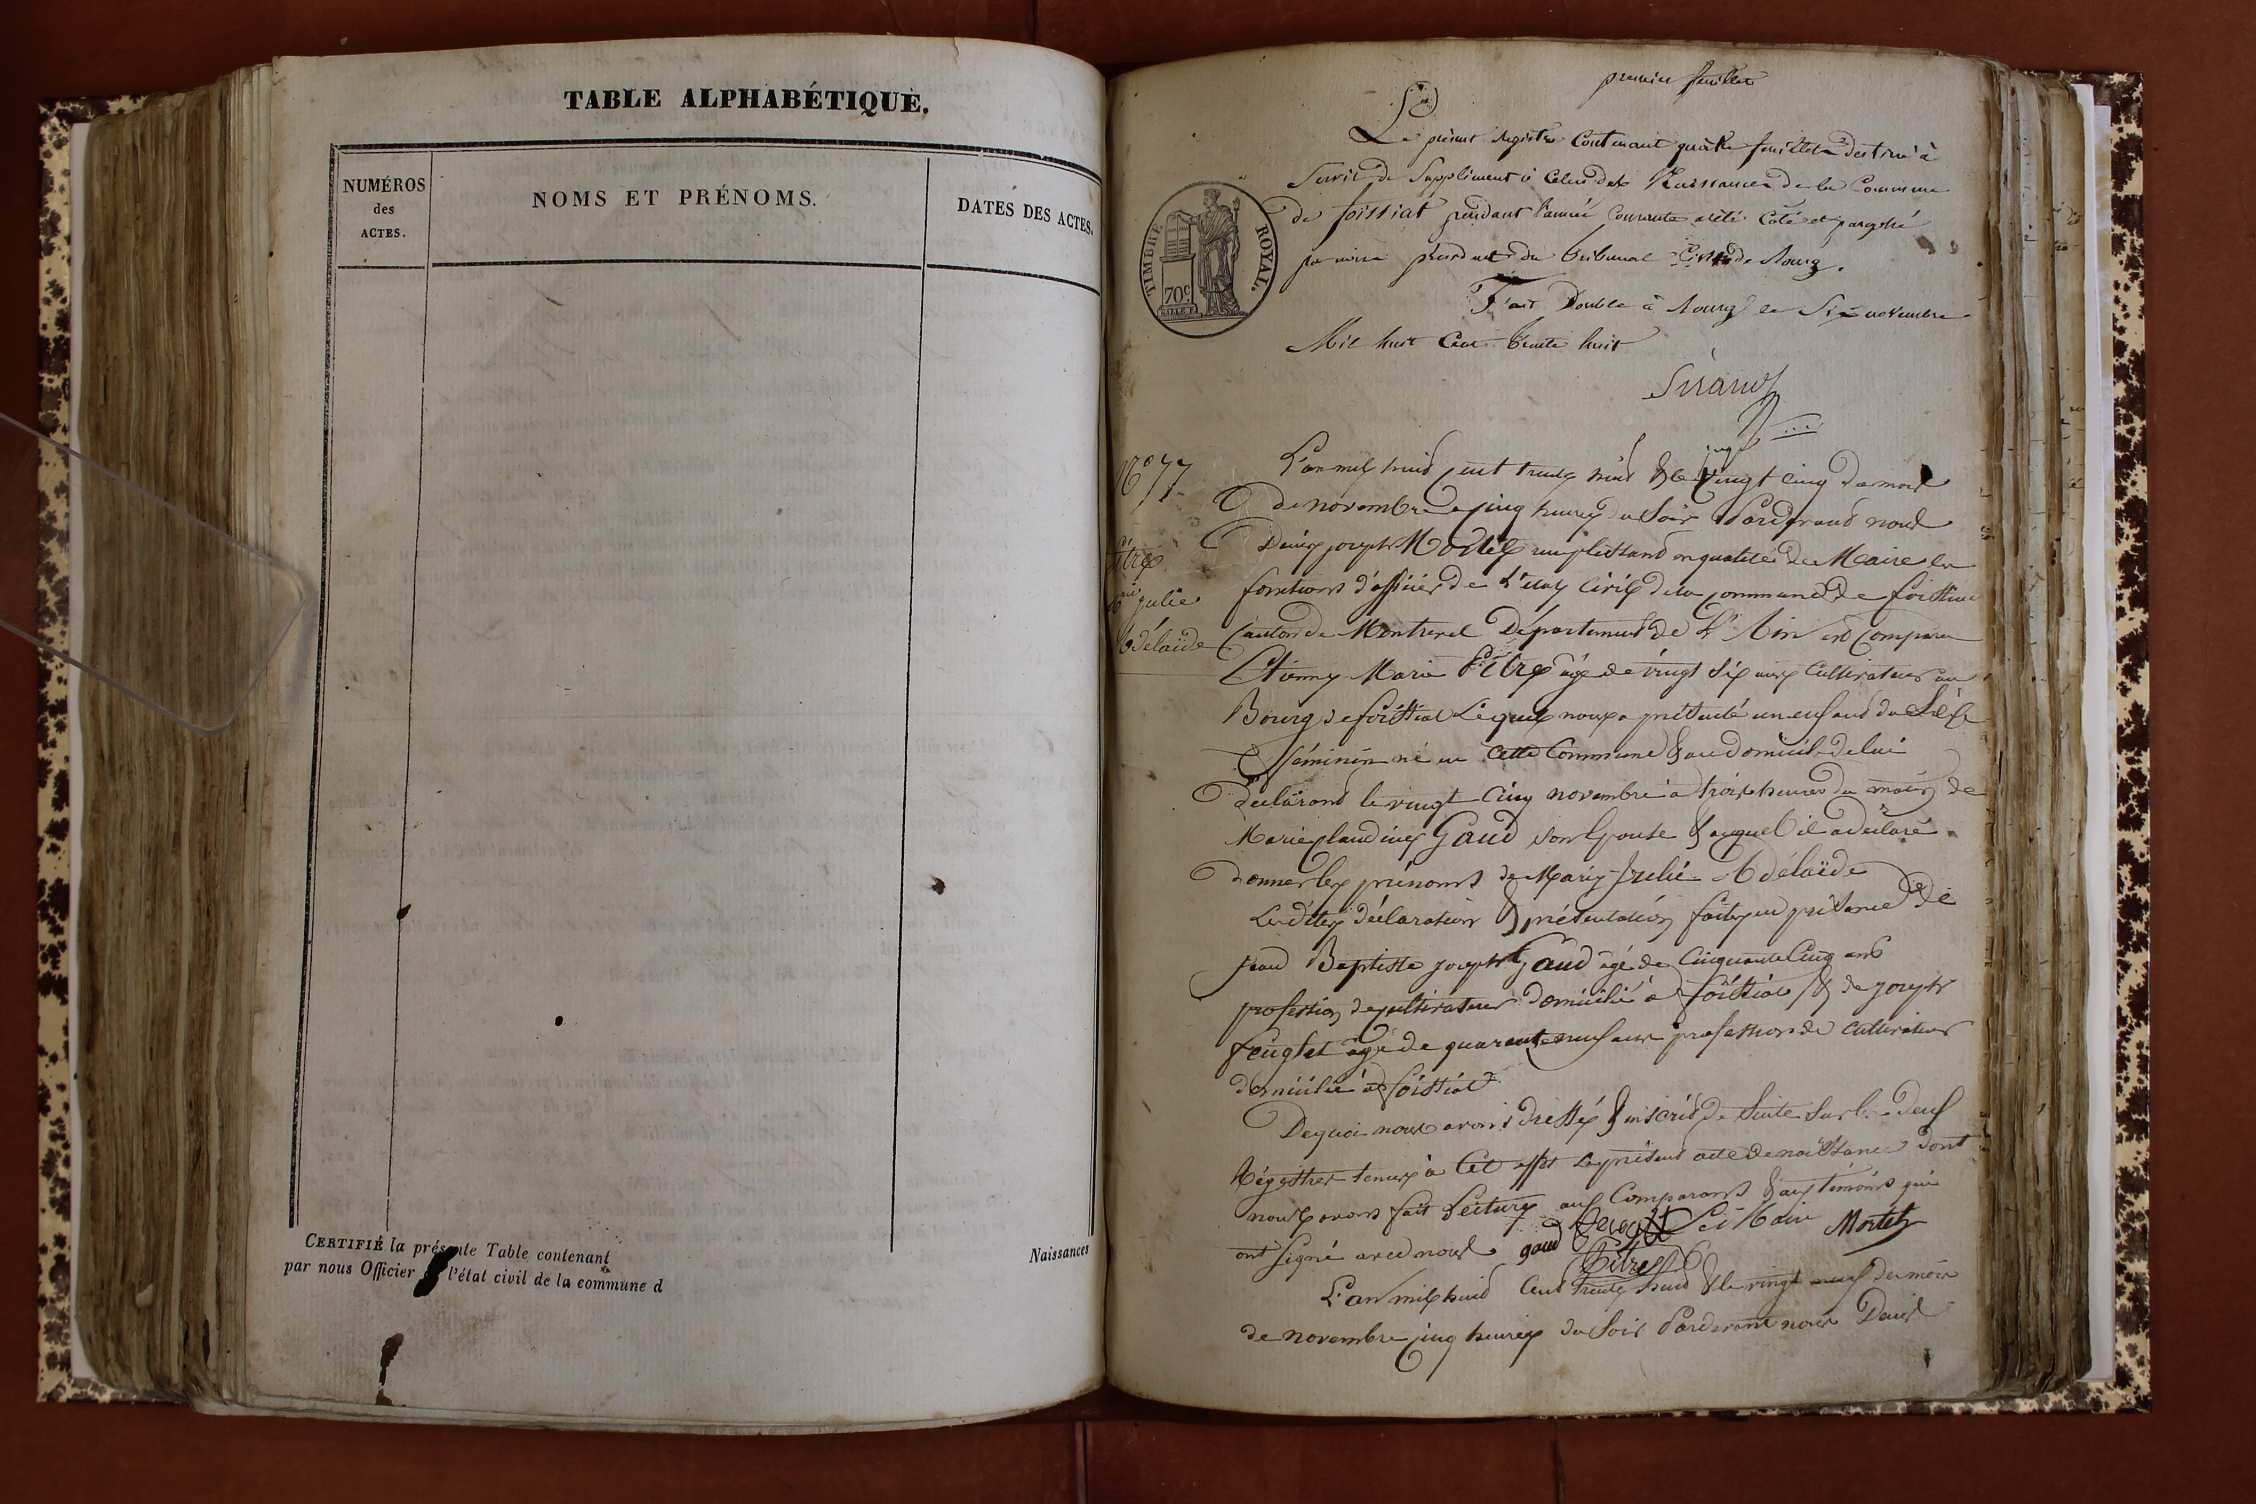 TABLE ALPHABÉTIQUE.
NUMÉROS
des
ACTES.
NOMS ET PRÉNOMS.
DATES DES ACTES.
CERTIFIÉ la présente Table contenant
par nous Officier de l'état civil de la commune d
Naissances
premier feuillet
Le présent Registre Contenant quatre feuillets destiné à
Servir de Supplément à Celui des Naissances de la Commune
de foissiat pendant l'année Courante a été Coté et paraphé
par nous président du tribunal Civil de Bourg.
Fait Double à Bourg le Six novembre
Mil huit Cent trente huit
Sirand
TIMBRE ROYAL.
70c.
N° 77
Pitre
Mie julie
Adélaïde
L'an mil huid cent trente huid & le vingt cinq du mois
de novembre a cinq heures du Soir Pardevand nous
Denis joseph Mortel remplissand en qualité de Maire les
fonctions d'officier de L'état Civil de la commune de foissiat
Canton de Montrevel Département de L'Ain est Comparu
Etienne Marie Pitre âgé de vingt six ans Cultivateur au
Bourg de foissiat Lequel nous a présenté un enfand du Sèxe
féminin né en cette Commune & au domicile de lui
déclarand le vingt Cinq novembre à trois heures du matin de
Marie Claudine Gaud son Epouse & auquel il a déclaré
donner les prénoms de Marie Julie Adélaïde
Lesdites déclaration & présentation faites en présence de
jean Baptiste joseph Gaud âgé de Cinquante Cinq ans
profession de cultivateur domicilié à foissiat & de joseph
feuglet âgé de quarante neuf ans profession de cultivateur
domicilié à foissiat
Dequoi nous avons dressé & inscrid de Suite Sur les deux
Régistres tenus à Cet effet le présent acte de naissance dont
nous avons fait Lecture aux Comparants & aux témoins qui
ont signé avec nous gaud Le Maire Mortel
Pitre
L'an mil huid Cent trente huid & le vingt neuf du mois
de novembre cinq heures du Soir Pardevant nous Denis